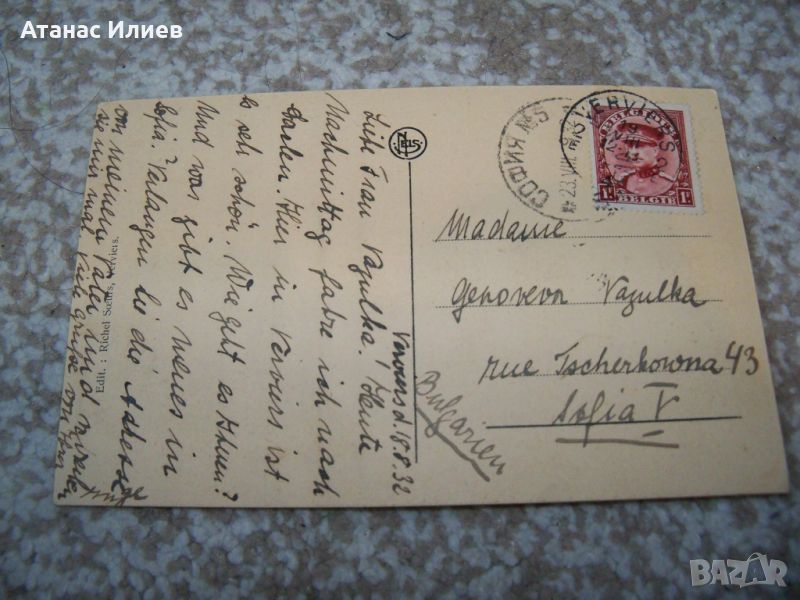 Атанас Илиев
Verviers d. 18.8.32
Liebe Frau Vazulka! Heute
Nachmittag fahre ich nach
Hier in Verviers ist
es sehr schön. Wie geht es Ihnen?
Und was gibt es neues in
Sofia? Verlangen Sie die Adresse
von meinem Vater und
sie mir mal Viele Grüsse von Ihrer
Edit. : Richel Sœurs, Verviers.
NELS
СОФИЯ №5
VERVIERS
BELGIQUE
1F 1F
BELGIE
Madame
Genoveva Vazulka
rue Tscherkowna 43
Sofia V
Bulgarien
BAZAR